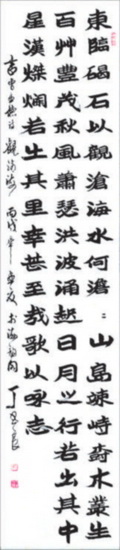 東臨碣石以觀滄海水何澹:山島竦峙壽木叢生
百艸豐茂秋風蕭瑟洪波涌起日月之行若出其中
星漢燦爛若生其里幸甚至哉歌以咏志
觀滄海 丙戌年